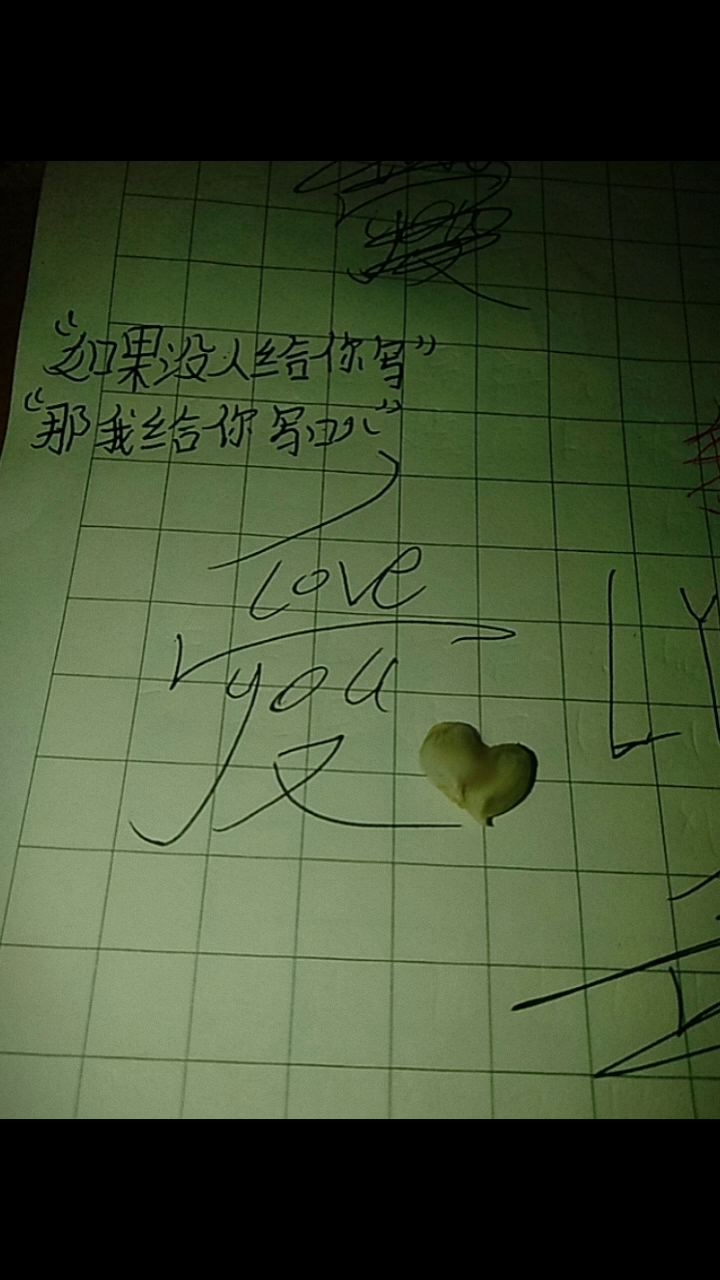 “如果没人给你写”
“那我给你写吧”
love
you
LY